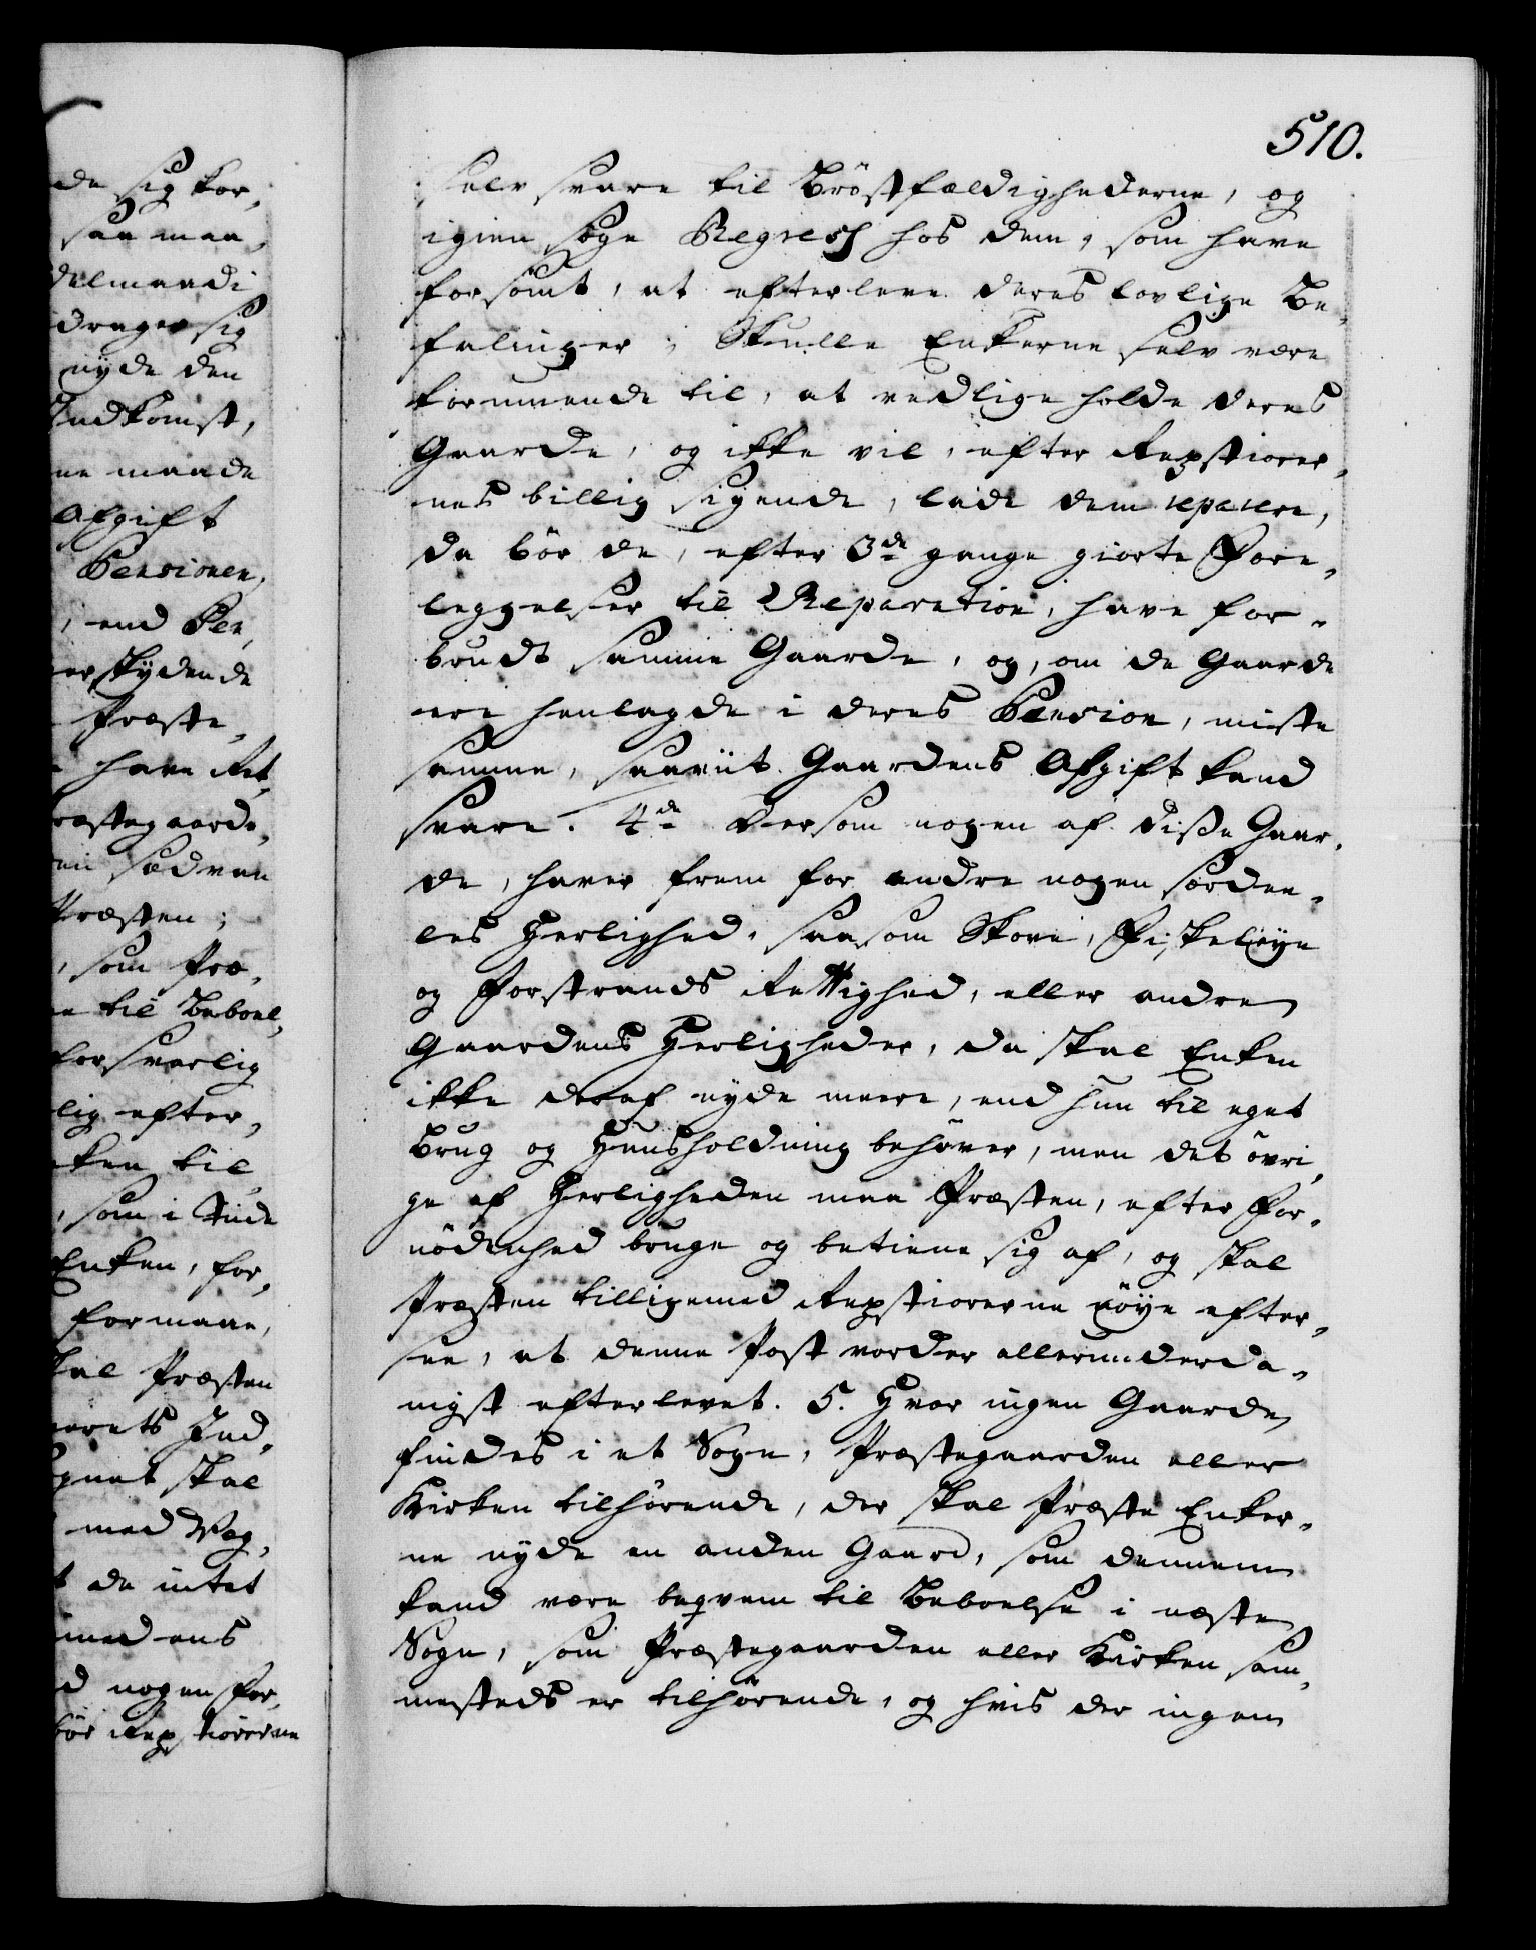 510.
selv svare til Bröstfældighederne, og
igien søge Regress hos dem, som have
forsömt, at efterleve deres lovlige Be-
falinger; Skulle Enkerne selv være
formuende til, at vedlige holde deres
Gaarde, og ikke vil, efter Repstiorer-
nes billig sigende, lade dem reparere,
da bör de, efter 3de gange giorte Fore-
leggelser til Reparation, have for-
brudt samme Gaarde, og, om de Gaarde
ere henlagde i deres Pension, miste
samme, saaviit Gaardens Afgift kand
svare. 4de Dersom nogen af disse Gaar-
de, haver frem for andre nogen sörde-
les Herlighed, saasom Skove, Fiskeleye
og Forstrands Rettighed, eller andre
Gaardens Herligheder, da skal Enken
ikke deraf nyde meere, end hun til eget
Brug og Huusholdning behöver, men det övri-
ge af Herligheden maa Præsten, efter For-
nödenhed bruge og betiene sig af, og skal
Præsten tilligemed Repstiorerne nöye efter-
see, at denne Post vorder allerunderda-
nigst efterlevet. 5. Hvor ingen Gaarde
findes i et Sogn, Præstegaarden eller
Kirken tilhörende, der skal Præste Enker-
ne nyde en anden Gaard, som dennem
kand være beqvem til Beboelse i næste
Sogn, som Præstegaarden eller Kirken sam-
mesteds er tilhörende, og hvis der ingen
de sig for-
saa maa,
drager sig
nyde den
Indkomst,
ne maade
Afgift
Pensionen,
, end Pen-
erskydende
Præste-
have Ret-
ræstegaarde,
Præsten;
, som Præ-
til Beboel-
forsvarlig
lig efter-
ken til
, som i Tide
Enken, for-
formaae,
kal Præsten
arets Ind-
gnet skal
t de intet
nogen for-
bör Repstiorerne